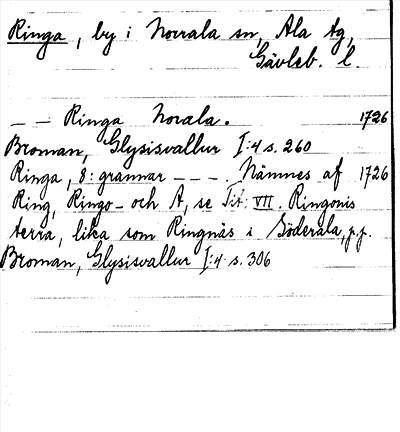 Ringa, by i Norrala sn, Ala tg,
Gävleb. l.
— — Ringa Norala. 1726
Broman, Glysisvallur I:4 s. 260
Ringa, 8: grannar — — —. Nämnes af 1726
Ring, Ringo- och A, se Tit: VII. Ringonis
terra, lika som Ringnäs i Söderala, p.p.
Broman, Glysisvallur I:4 s. 306